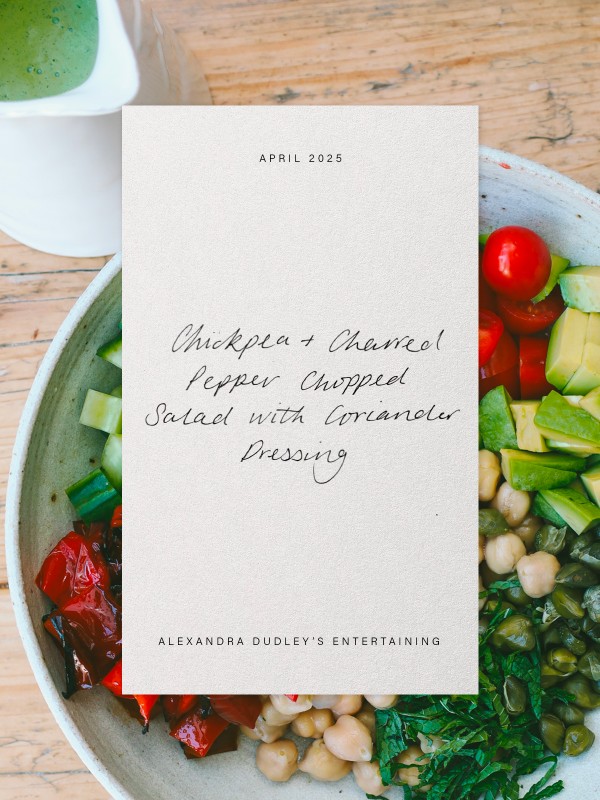 APRIL 2025
Chickpea + Charred
Pepper Chopped
Salad with Coriander
Dressing
ALEXANDRA DUDLEY'S ENTERTAINING